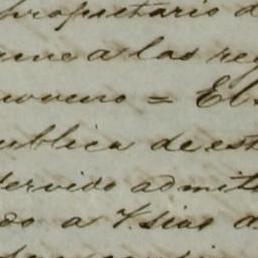 propietario d
rme a las reg
noveno = El
ublica de est
servido admit
do a V. sias d